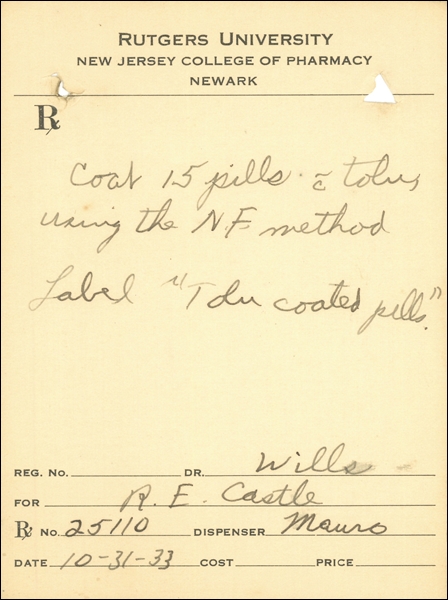 RUTGERS UNIVERSITY
NEW JERSEY COLLEGE OF PHARMACY
NEWARK
℞
Coat 15 pills c̄ tolu,
using the N.F. method
Label "Tolu coated pills."
REG. NO. DR. Wills
FOR R. E. Castle
℞ NO. 25110 DISPENSER Mauro
DATE 10-31-33 COST PRICE